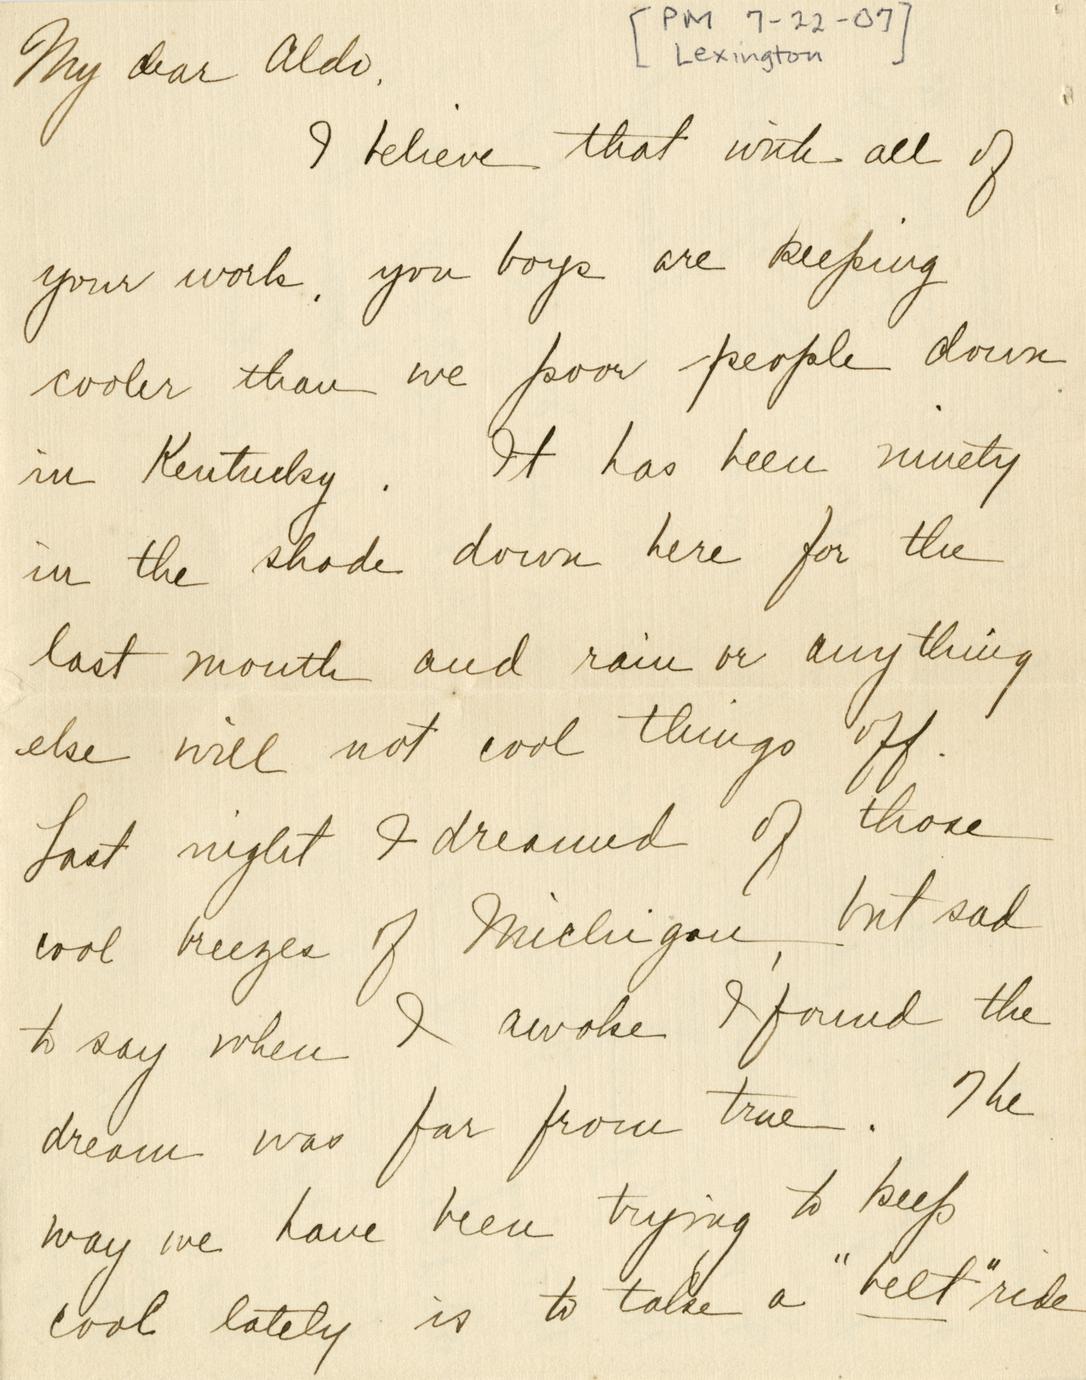 [PM 7-22-07]
Lexington
My dear Aldo,
I believe that with all of
your work, you boys are keeping
cooler than we poor people down
in Kentucky. It has been ninety
in the shade down here for the
last month and rain or anything
else will not cool things off.
Last night I dreamed of those
cool breezes of Michigan, but sad
to say when I awoke I found the
dream was far from true. The
way we have been trying to keep
cool lately is to take a "belt" ride